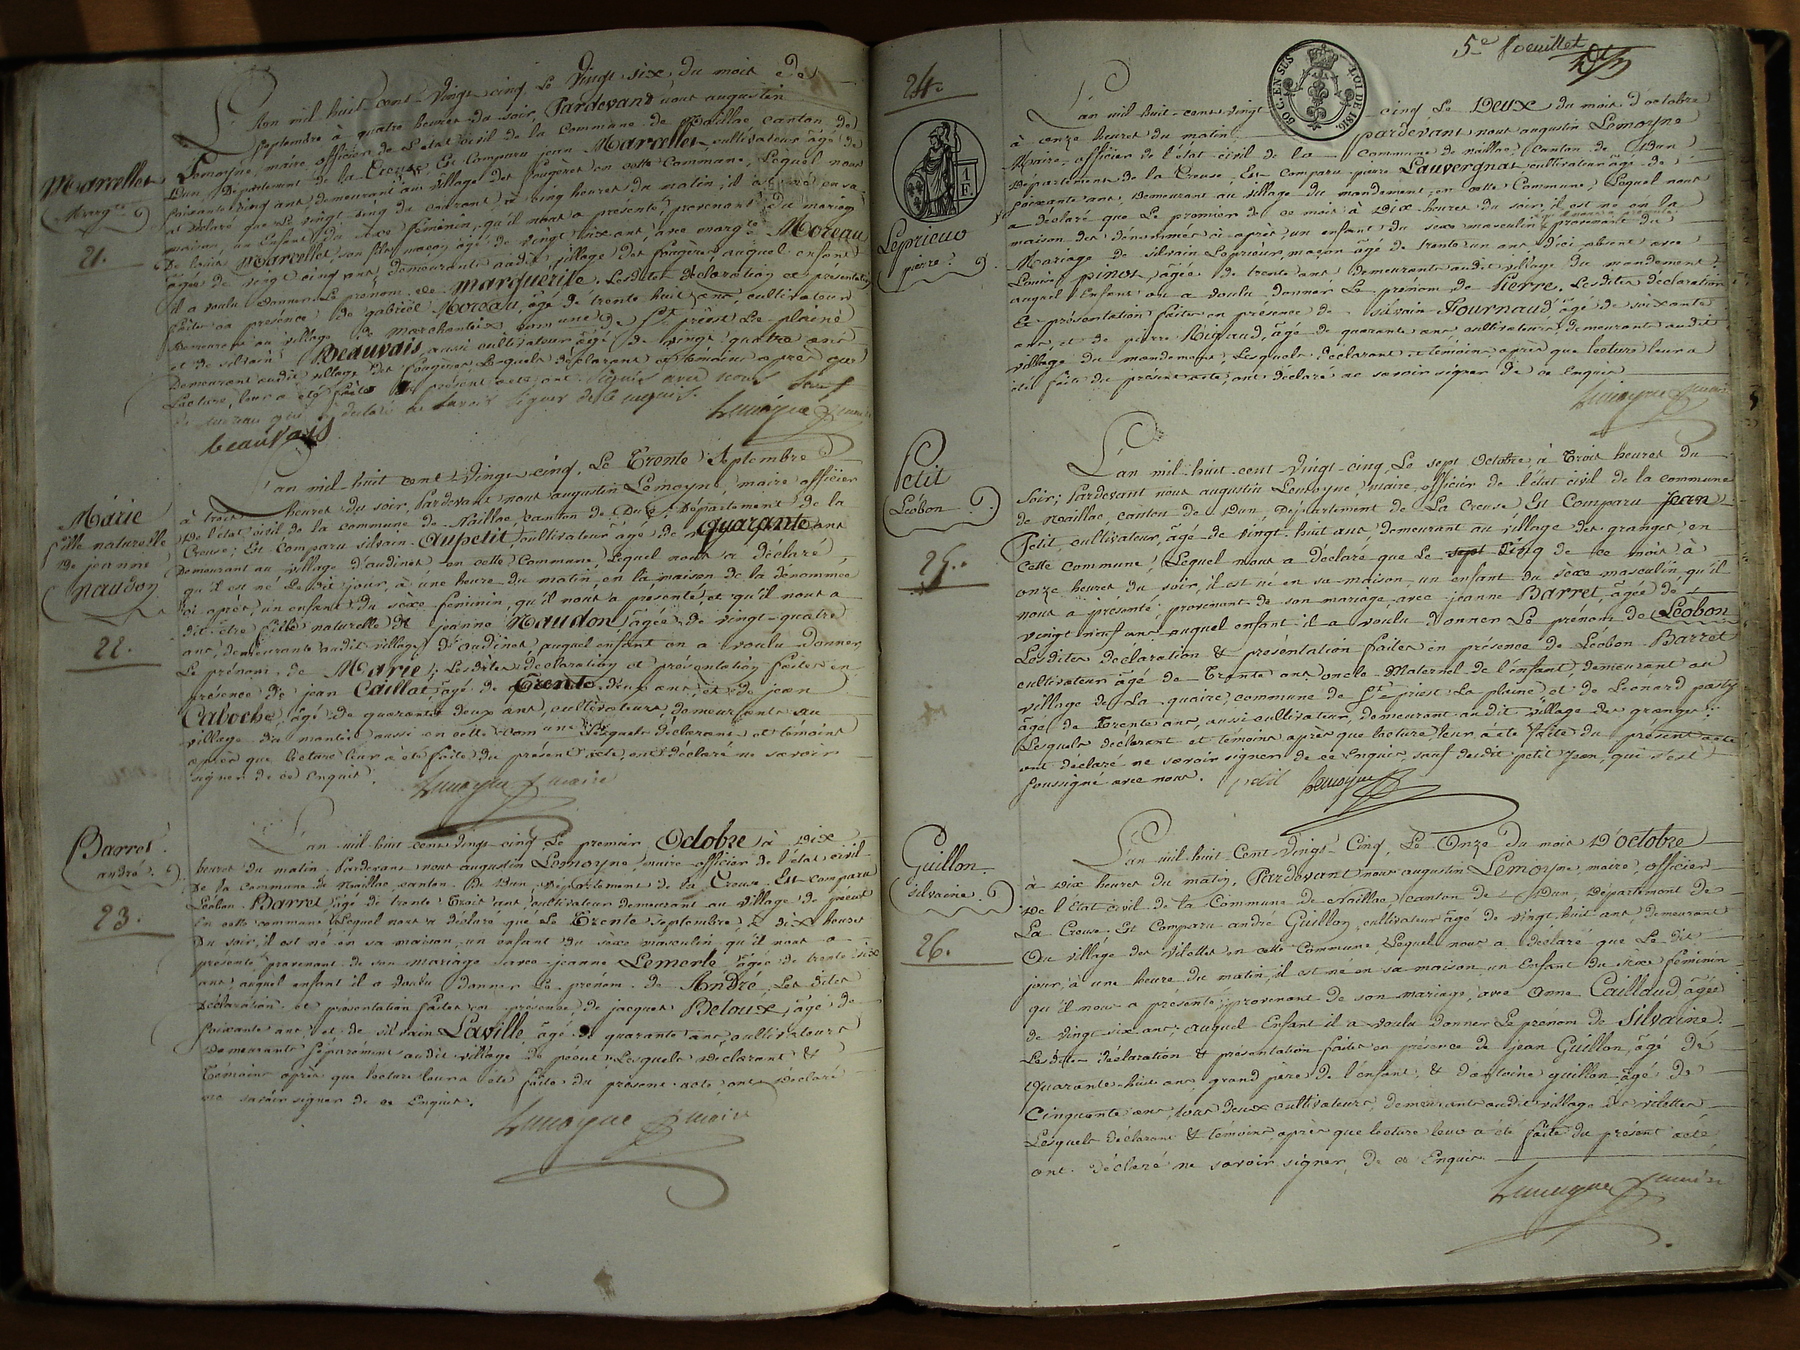 L'An mil huit cent vingt cinq Le Vingt six du mois de
Septembre à quatre heures du soir, Pardevant nous augustin
Lemoyne, maire officier de L'état civil de la Commune de Naillac canton de
Dun Département de la Creuse Est Comparu jean Marcellot, cultivateur âgé de
soixante cinq ans, demeurant au village des fougères en cette Commune, Lequel nous
a déclaré que Le vingt cinq du courant à cinq heures du matin, il est né en sa
maison, un Enfant du sexe féminin, qu'il nous a présenté, provenant du mariage
De Marcellot, son fils maçon âgé de vingt six ans, avec margte Moreau
âgée de vingt cinq ans demeurante audit village des fougères, auquel enfant
il a voulu donner Le prénom de Marguerite. Lesdites déclaration et présentation
faites en présence de gabriel Moreau, âgé de trente huit ans, cultivateur
demeurant au village de marchanteix commune de St priest La plaine
et de silvain Beauvais, aussi cultivateur, âgé de vingt quatre ans
Demeurant audit village des fougères Lesquels déclarant et témoins après que
Lecture, leur a été faite du présent acte, ont signés avec nous sauf
moreau qui a déclaré ne savoir signer de ce enquis.
beauvais
Lemoyne maire
Marcellot
Margte
21.
L'an mil huit cent vingt cinq, Le Trente Septembre
à trois heures du soir, Pardevant nous augustin Lemoyne, maire officier
De l'état civil, de la commune de Naillac, canton de Dun, Département de la
Creuse; Est comparu silvain Aupetit, cultivateur âgé de quarante ans
Demeurant au village d'audinet en cette Commune, Lequel nous a déclaré
qu'il est né Ledit jour, à une heure du matin, en la maison de la dénommée
ci après, un enfant du sèxe féminin, qu'il nous a présenté, et qu'il nous a
dit être fille naturelle de jeanne Naudon, âgée de vingt quatre
ans, demeurante audit village d'audinet, auquel enfant on a voulu donner
Le prénom de Marie; Lesdites déclaration et présentation faites en
présence de jean Caillat, âgé de trente deux ans, et de jean
Caboche, âgé de quarante deux ans, cultivateurs, demeurants au
village aussi en cette commune Lesquels déclarant et témoins
après que lecture leur a été faite du présent acte, ont déclaré ne savoir
signer de ce Enquis.
Lemoyne maire
Marie
fille naturelle
de jeanne
naudon
22.
L'an mil huit cent vingt cinq, Le premier Octobre à Dix
heures du matin Pardevant nous augustin Lemoyne, maire officier de l'état civil
De la Commune de Naillac, canton de Dun Département de la Creuse, Est Comparu
Léobon Barret, âgé de trente trois ans, cultivateur demeurant au village de
En cette commune Lequel nous a déclaré que Le Trente Septembre, à dix heures
Du soir, il est né en sa maison, un enfant du sèxe masculin qu'il nous a
présenté, provenant de son mariage avec jeanne Lemerle, âgée de trente six
ans, auquel enfant il a voulu donner Le prénom de André, Les dites
Déclaration et présentation faites en présence de jacques Beloux, âgé de
soixante ans et de silvain Laville âgé de quarante ans, cultivateurs
demeurants séparément audit village Lesquels déclarant &
Témoins après que lecture leur a été faite du présent acte ont déclaré
ne savoir signer de ce Enquis.
Lemoyne maire
Barret
andré.
23.
5e feuillet
24.
L'an mil huit cent vingt cinq Le Deux du mois d'octobre
à onze heures du matin Pardevant nous augustin Lemoyne
Maire officier de l'état civil de la Commune de Naillac, Canton de Dun
Département de la Creuse, Est Comparu pierre Lauvergnat cultivateur âgé de
soixante ans, Demeurant au village du mandement, en cette Commune, Lequel nous
a déclaré que Le premier de ce mois à Dix heures du soir, il est né en la
maison des dénommés ci après, un enfant du sexe masculin provenant du
Mariage de silvain Leprieur, maçon âgé de trente un ans d'ici absent avec
Louise pinot, âgée de trente ans demeurante audit village du mandement
auquel Enfant on a voulu donner Le prénom de Pierre. Lesdites déclaration
Et présentation faites en présence de silvain Fournaud, âgé de soixante
ans, et de pierre Rigaud, âgé de quarante ans cultivateurs, demeurants audit
village du mandement, Lesquels déclarant et témoins, après que lecture leur a
été faite du présent acte, ont déclaré ne savoir signer de ce Enquis
Lemoyne maire
Leprieur
pierre
50 C. EN SUS
LOI DE 1816
1 F.
L'an mil huit cent vingt cinq, Le sept Octobre à trois heures du
Soir; Pardevant nous augustin Lemoyne, maire officier de l'état civil de la commune
de Naillac, canton de Dun Département de La Creuse Est Comparu Jean
Petit, cultivateur, âgé de vingt huit ans, demeurant au village des granges, en
Cette commune, Lequel nous a déclaré que Le sept Cinq de ce mois à
onze heures du soir, il est né en sa maison, un enfant du sèxe masculin, qu'il
nous a présenté, provenant de son mariage, avec jeanne Barret, âgée de
vingt neuf ans auquel enfant il a voulu donner Le prénom de Léobon
Lesdites déclaration & présentation faites en présence de Léobon Barret
cultivateur âgé de Trente ans oncle Maternel de l'enfant, demeurant au
village de La quaire, commune de St priest La plaine, et de Léonard
âgé de Trente ans, aussi cultivateur, demeurant audit village des granges
Lesquels déclarant et témoins après que lecture leur a été faite du présent acte
ont déclaré ne savoir signer de ce Enquis, sauf ledit petit Jean, qui s'est
soussigné avec nous. petit Lemoyne
Petit
Léobon
25.
L'an mil huit Cent Vingt Cinq, Le Onze du mois D'octobre
à Dix heures du matin, Pardevant nous augustin Lemoyne maire, officier
De l'Etat civil de la Commune de Naillac, canton de Dun Département de
La Creuse Est Comparu andré Guillon, cultivateur âgé de vingt huit ans demeurant
Au village des vilettes en cette Commune, Lequel nous a déclaré que Le dit
jour, à une heure du matin, il est né en sa maison un Enfant du sexe féminin
qu'il nous a présenté, provenant de son mariage, avec Anne Caillaud, âgée
de vingt six ans, auquel Enfant il a voulu donner Le prénom de Silvaine.
Lesdites déclaration & présentation faites en présence de jean Guillon, âgé de
Quarante huit ans grand père de l'enfant, & d'antoine guillon âgé de
Cinquante ans, tous deux cultivateurs demeurants audit village des vilettes
Lesquels déclarant & témoins, après que lecture leur a été faite du présent acte
ont déclaré ne savoir signer, de ce Enquis
Lemoyne maire
Guillon
Silvaine
26.